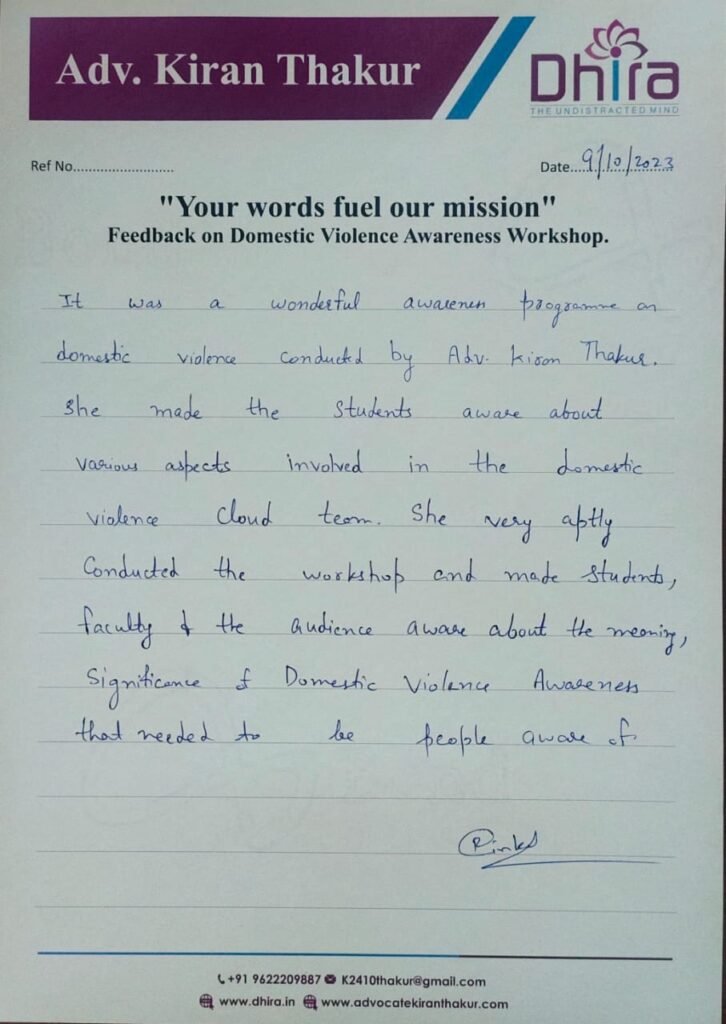 Adv. Kiran Thakur
Dhira
THE UNDISTRACTED MIND
Ref No..........................
Date....9/10/2023
"Your words fuel our mission"
Feedback on Domestic Violence Awareness Workshop.
It was a wonderful awareness programme on
domestic violence conducted by Adv. Kiran Thakur.
She made the students aware about
various aspects involved in the domestic
violence cloud team. She very aptly
Conducted the workshop and made students,
faculty & the audience aware about the meaning,
Significance of Domestic Violence Awareness
that needed to be people aware of
+91 9622209887 K2410thakur@gmail.com
www.dhira.in www.advocatekiranthakur.com